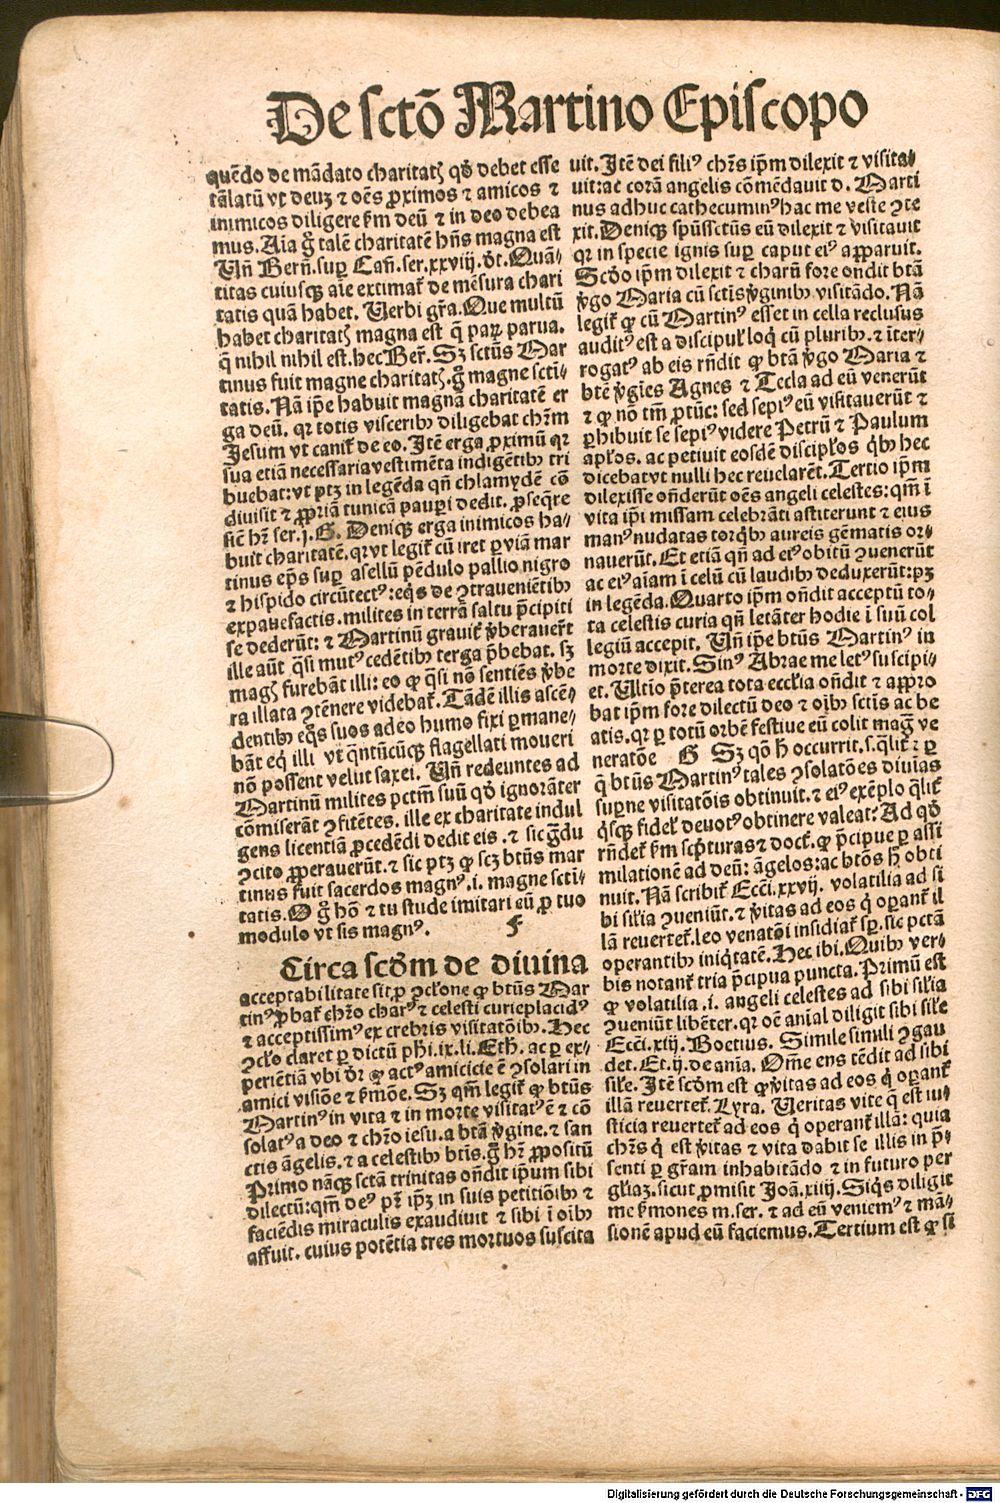 De sctō Martino Episcopo
quēdo de mādato charitatꝭ qđ debet esse
tālatū vt deuꝫ ⁊ oēs ꝓximos ⁊ amicos ⁊
inimicos diligere ẜm deū ⁊ in deo debea
mus. Aīa gͦ talē charitatē hn̄s magna est
Vn̄ Bern̄. suꝑ Cañ. ser. xxviij. dt. Quā-
titas cuiusqꝫ aīe extimat̄ de mēsura chari
tatis quā habet. Verbi gr̄a. Que multū
habet charitatꝭ magna est q̄ paꝝ parua.
q̄ nihil nihil est. hec Ber̄. Sꝫ sctūs Mar
tinus fuit magne charitatꝭ. gͦ magne scti-
tatis. Nā ip̄e habuit magnā charitatē er
ga deū. qꝛ totis visceribꝰ diligebat chr̄m
Jesum vt canit̄ de eo. Jtē erga ꝓximū qꝛ
sua etiā necessaria vestimēta indigētibꝰ tri
buebat: vt ptꝫ in legēda qn̄ chlamydē cō
diuisit ⁊ ꝓpriā tunicā pauꝑi dedit. ꝓseq̄re
sic̄ hr̄ ser. j. G. Deniqꝫ erga inimicos ha-
buit charitatē. qꝛ vt legit̄ cū iret ꝑ viā mar
tinus ep̄s suꝑ asellū pēdulo pallio nigro
⁊ hispido circūtectꝰ: eqͥs de ꝯtrauenientibꝰ
expauefactis. milites in terrā saltu p̄cipiti
se dederūt: ⁊ Martinū grauit̄ v̄berauer̄t
ille aūt q̄si mutꝰ cedētibꝰ terga p̄bebat. sꝫ
magꝭ furebāt illi: eo ꝙ q̄si nō sentiēs v̄be
ra illata ꝯtēnere videbat̄. Tādē illis ascē-
dentibꝰ eqͦs suos adeo humo fixi ꝑmane-
bāt eqͥ illi vt q̄ntūcūqꝫ flagellati moueri
nō possent velut saxei. Vn̄ redeuntes ad
Martinū milites pctm̄ suū qđ ignorāter
cōmiserāt ꝯfitētes. ille ex charitate indul
gens licentiā ꝓcedēdi dedit eis. ⁊ sic gͣdu
ꝯcito ꝓperauerūt. ⁊ sic ptꝫ ꝙ scꝫ btūs mar
tinus fuit sacerdos magnꝰ. i. magne scti-
tatis. O gͦ hō ⁊ tu stude imitari eū ꝓ tuo
modulo vt sis magnꝰ. F
Circa scđm de diuina
acceptabilitate sit ꝓ ꝯclone ꝙ btūs Mar
tinꝰ ꝓbat̄ chr̄o charꝰ ⁊ celesti curie placidꝰ
⁊ acceptissimꝰ ex crebris visitatōibꝰ. Hec
ꝯclo claret ꝑ dictū phi. ix. li. Eth. ac ꝑ ex-
periētiā vbi dr̄ ꝙ actꝰ amicicie ē ꝯsolari in
amici visiōe ⁊ ẜmōe. Sꝫ qm̄ legit̄ ꝙ btūs
Martinꝰ in vita ⁊ in morte visitatꝰ ē ⁊ cō
solatꝰ a deo ⁊ chr̄o iesu. a btā v̄gine. ⁊ san
ctis āgelis. ⁊ a celestibꝰ btis. gͦ hr̄ ꝓpositū
Primo nāqꝫ sctā trinitas on̄dit ip̄um sibi
dilectū: qm̄ deꝰ pr̄ ip̄ꝫ in suis petitiōibꝰ ⁊
faciēdis miraculis exaudiuit ⁊ sibi ī oībꝰ
affuit. cuius potētia tres mortuos suscita
uit. Jtē dei filiꝰ chr̄s ip̄m dilexit ⁊ visita-
uit: ac corā angelis cōmēdauit d. Marti
nus adhuc cathecuminꝰ hac me veste ꝯte
xit. Deniqꝫ spūssctūs eū dilexit ⁊ visitauit
qꝛ in specie ignis suꝑ caput eiꝰ apparuit.
Scđo ip̄m dilexit ⁊ charū fore on̄dit btā
v̄go Maria cū sctis v̄ginibꝰ visitādo. Nā
legit̄ ꝙ cū Martinꝰ esset in cella reclusus
auditꝰ est a discipul̄ loqͥ cū pluribꝰ. ⁊ īter-
rogatꝰ ab eis rn̄dit ꝙ btā v̄go Maria ⁊
btē v̄gīes Agnes ⁊ Tecla ad eū venerūt
⁊ ꝙ nō tm̄ ꝓtūc: sed sepiꝰ eū visitauerūt ⁊
ꝑhibuit se sepiꝰ videre Petrū ⁊ Paulum
apl̄os. ac petiuit eosdē discipl̄os qͥbꝰ hec
dicebat vt nulli hec reuelarēt. Tertio ip̄m
dilexisse on̄derūt oēs angeli celestes: qm̄ ī
vita ip̄i missam celebrāti astiterunt ⁊ eius
manꝰ nudatas torqͥbꝰ aureis gēmatis or-
nauerūt. Et etiā qn̄ ad eiꝰ obitū ꝯuenerūt
ac eiꝰ aīam ī celū cū laudibꝰ deduxerūt: pꝫ
in legēda. Quarto ip̄m on̄dit acceptū to-
ta celestis curia qn̄ letāter hodie ī suū col
legiū accepit. Vn̄ ip̄e btūs Martinꝰ in
morte dixit. Sinꝰ Abrae me letꝰ suscipi-
et. Vltīo p̄terea tota eccl̄ia on̄dit ⁊ appro
bat ip̄m fore dilectū deo ⁊ oībꝰ sctis ac be
atis. qꝛ ꝑ totū orbē festiue eū colit magͣ ve
neratōe G Sꝫ qō h̄ occurrit. s. qͣlit̄ ⁊ ꝑ
q̄ btūs Martinꝰ tales ꝯsolatōes diuīas
suꝑne visitatōis obtinuit. ⁊ eiꝰ exēplo qͣlit̄
qͥsqꝫ fidel̄ deuotꝰ obtinere valeat: Ad qđ
rn̄det̄ ẜm scpturas ⁊ doct̄. ꝙ p̄cipue ꝑ assi
milationē ad deū: āgelos: ac btōs h̄ obti
nuit. Nā scribit̄ Ecci. xxvij. volatilia ad si
bi sil̄ia ꝯueniūt. ⁊ v̄itas ad eos qͥ oꝑant̄ il
lā reuertet̄. leo venatōi insidiat̄ sꝑ. sic pctā
operantibꝰ iniqͥtatē. Hec ibi. Quibꝰ ver-
bis notant̄ tria p̄cipua puncta. Primū est
ꝙ volatilia. i. angeli celestes ad sibi sil̄ia
ꝯueniūt libēter. qꝛ oē anīal diligit sibi sil̄e
Ecci. xiij. Boetius. Simile simili ꝯgau
det. Et. ij. de anīa. Om̄e ens tēdit ad sibi
sil̄e. Jtē scđm est ꝙ v̄itas ad eos qͥ oꝑant̄
illā reuertet̄. Lyra. Veritas vite q̄ est iu-
sticia reuertet̄ ad eos qͥ operant̄ illā: quia
chr̄s qͥ est v̄itas ⁊ vita dabit se illis in p̄-
senti ꝑ gr̄am inhabitādo ⁊ in futuro per
gl̄iaꝫ. sicut ꝓmisit Joā. xiiij. Siqͥs diligit
me ẜmones m. ser. ⁊ ad eū veniemꝰ ⁊ mā-
sionē apud eū faciemus. Tertium est ꝙ si
Digitalisierung gefördert durch die Deutsche Forschungsgemeinschaft - DFG